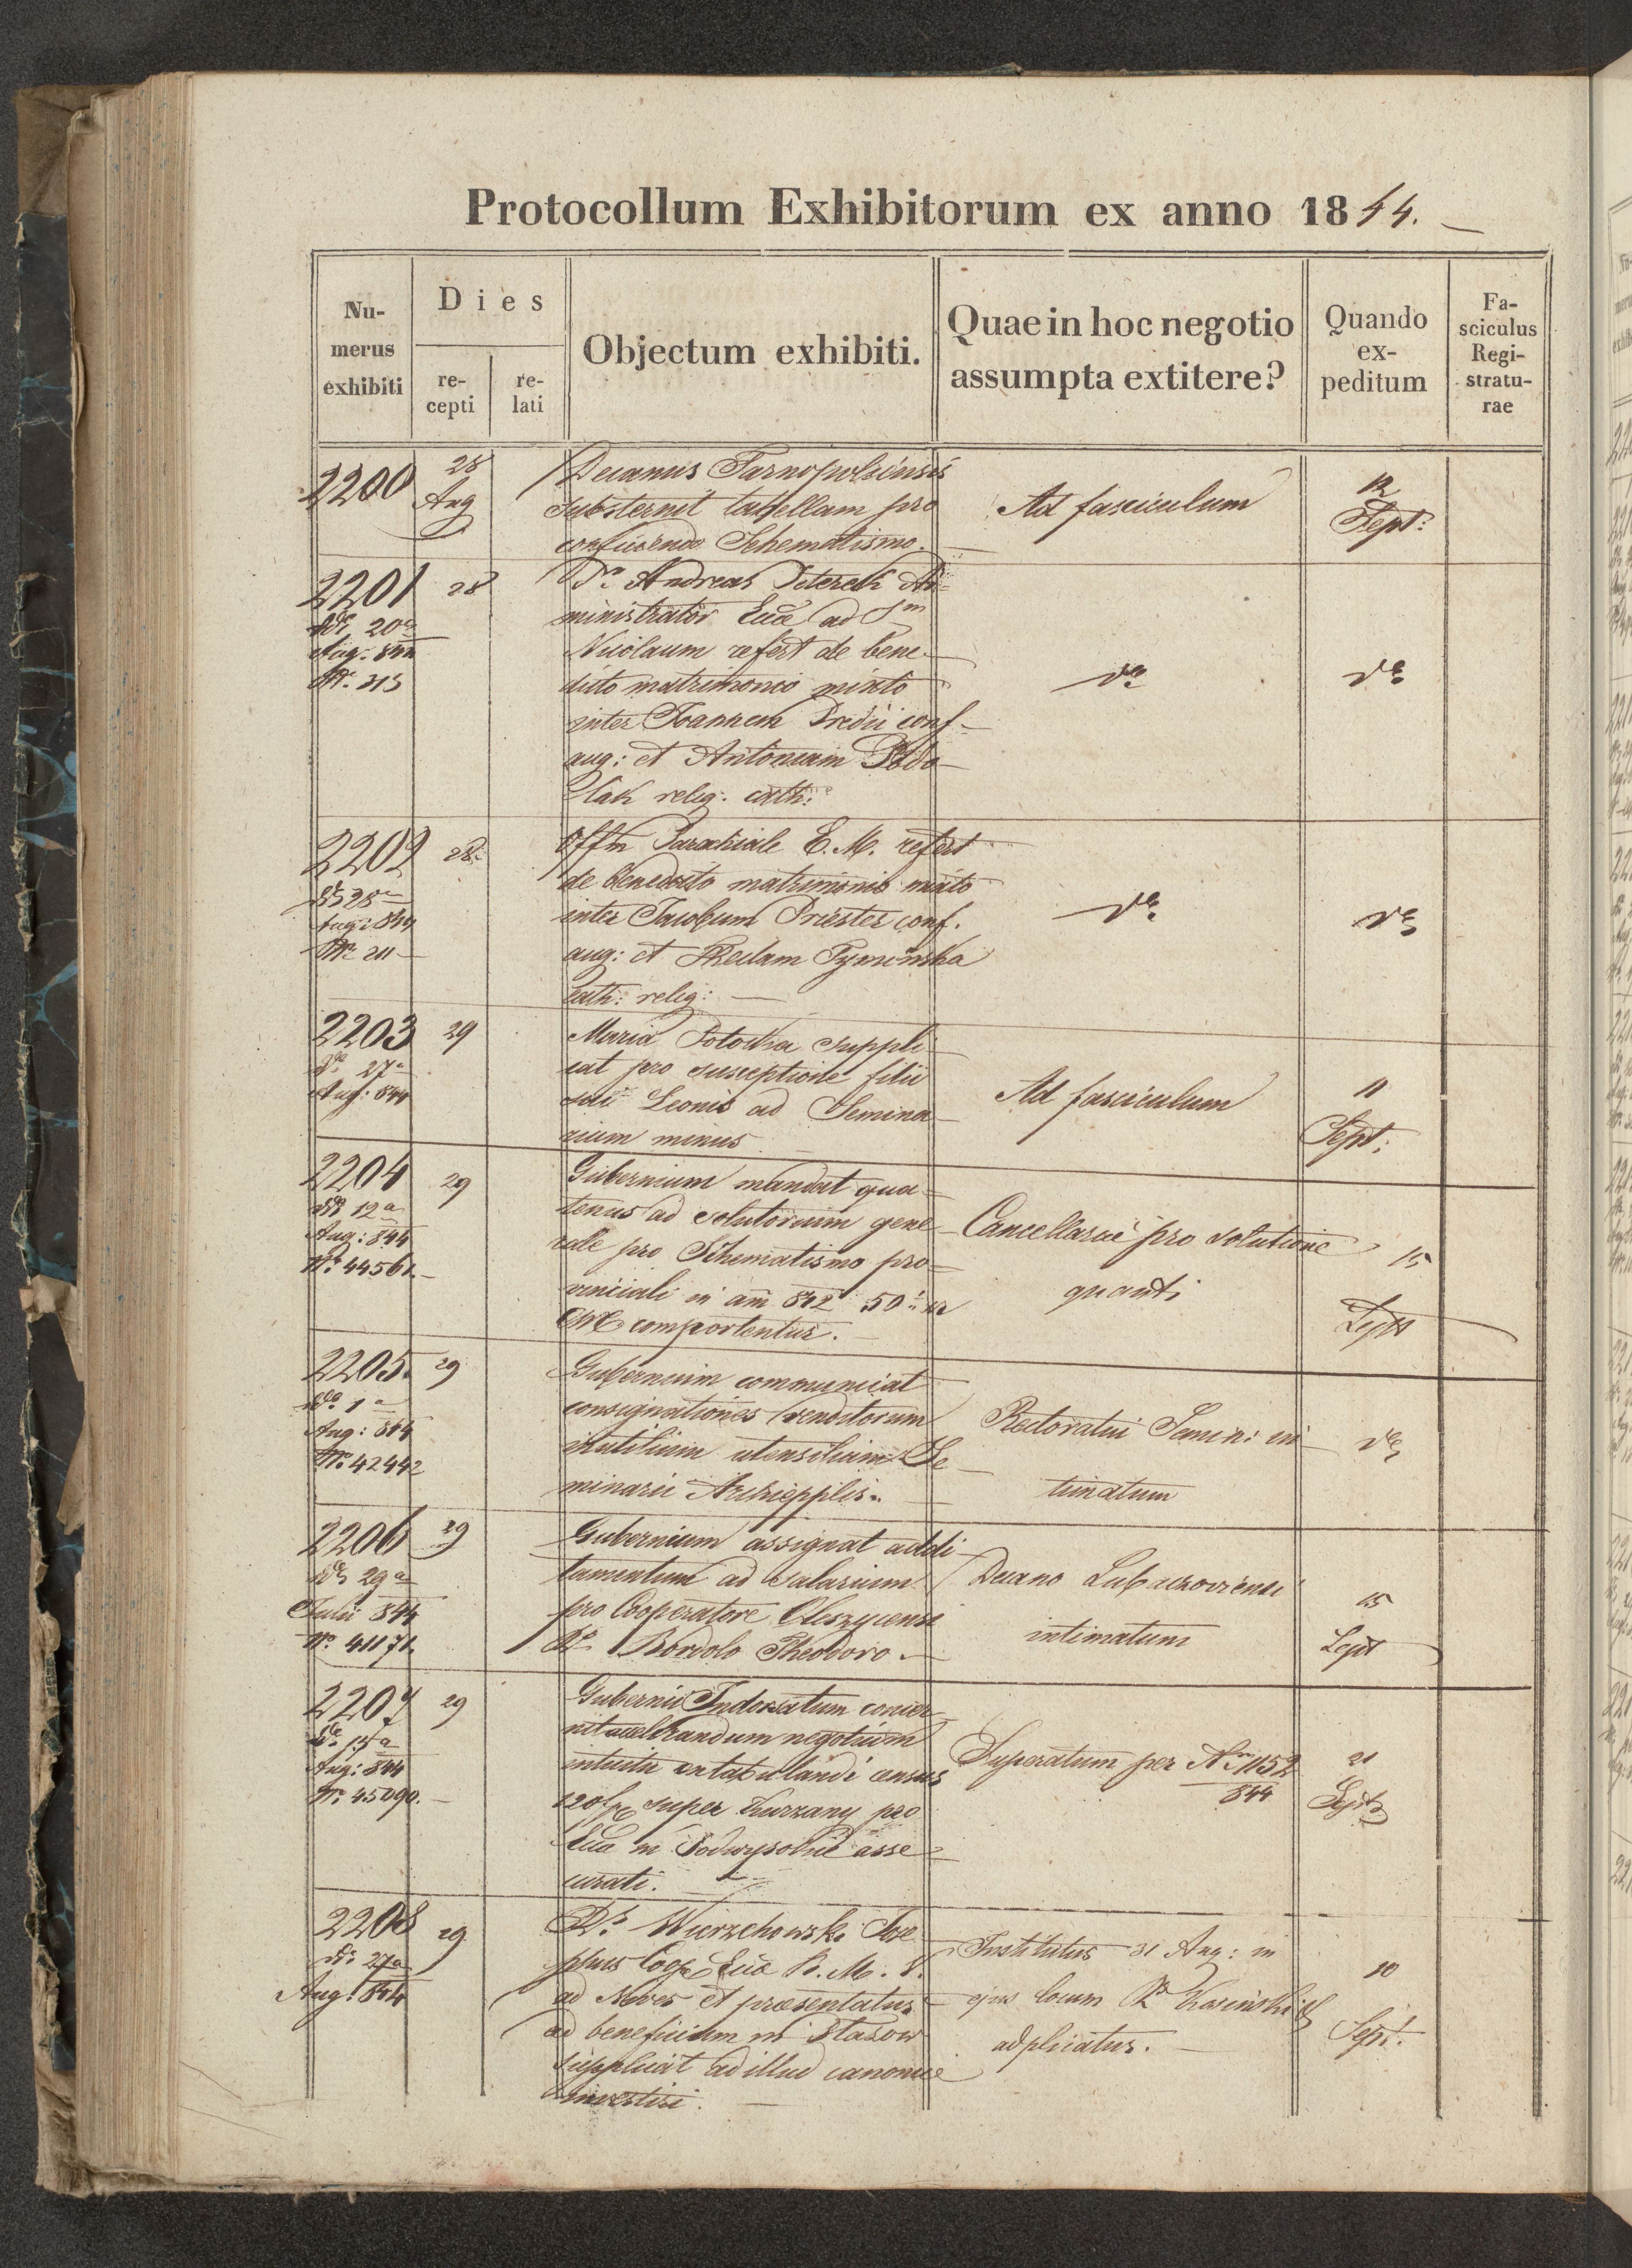 Protocollum Exhibitorum ex anno 1844.
Nu-
merus
exhibiti
Dies
re-
cepti
re-
lati
Objectum exhibiti.
Quae in hoc negotio
assumpta extitere?
Quando
ex-
peditum
Fa-
sciculus
Regi-
stratu-
rae
2200
28
Aug
Decanus Tarnopoliensis
substernit tabellam pro
conficiendo Schematismo.
Ad fasciculum
12
Sept:
2201
28
dde 20a
Aug: 844
Nr. 213
Andreas Ad-
ministrator Ecca ad Sm
Nicolaum refert de bene-
dicto matrimonio mixto
inter Joannem conf
aug: et Antoniam Podo-
lak relig. cath:
de
de
2202
28.
Aug: 844
Nr 211
Offm Parochiale C. M. refert
de benedicto matrimonio mixto
inter Jacobum Priester conf.
aug: et Theclam Tyminska
cath: relig:
de
de
2203
29
de 27a
Aug: 844
Maria Potocka suppli-
cat pro susceptione filii
sui Leonis ad Semina-
rium minus
Ad fasciculum
11
Sept:
2204
29
dde 12a
Aug: 844
Nr. 44561.
Gubernium mandat qua-
tenus ad solutorium gene-
rale pro Schematismo pro-
vinciali in am 842 50 xr
CM comportentur.
Cancellariae pro solutione
quanti
15
Sept
2205.
29
dde 1a
Aug: 844
Nr. 42442
Gubernium communicat
consignationes venditorum
inutilium utensilium Se-
minarii Archiepplis.
Rectoratui Semin: in-
timatum
de
2206
29
dde 29a
Julii 844
Nr. 41171.
Gubernium assignat addi-
tamentum ad salarium
pro Cooperatore Oleszycensi
Rdo Bordolo Theodoro.
Decano Lubaczoviensi
intimatum
15
Sept
2207
29
de 15a
Aug: 844
Nr. 45090.
Gubernii Indorsatum concer-
nit accelerandum negotium
intuitu extabulandi census
120 fr super Kurzany pro
Ecca in Podwysokie asse-
curati.
Superatum per Nrm 1152
844
21
Sept
2208
29
dde 27a
Aug: 844
Rds Wierzchowski Jose-
phus Coop Ecca B. M. V.
ad Nives et praesentatus
ad beneficium in Stasow
supplicat ad illud canonice
investiri.
Institutus 31 Aug: in
ejus locum Rds Kosinski
adplicatus.
10
Sept.